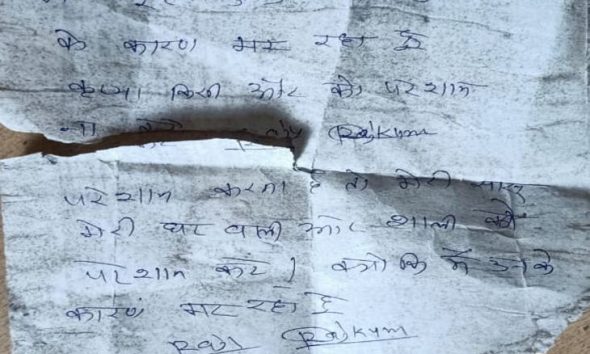 के कारण मर रहा हूँ
कृप्या किसी और को परेशान
ना Rajkum
परेशान करना है तो मेरी सास
मेरी घर वाली और शाली को
परेशान करें। क्योंकि मैं उनके
कारण मर रहा हूँ
Raju Rajkum